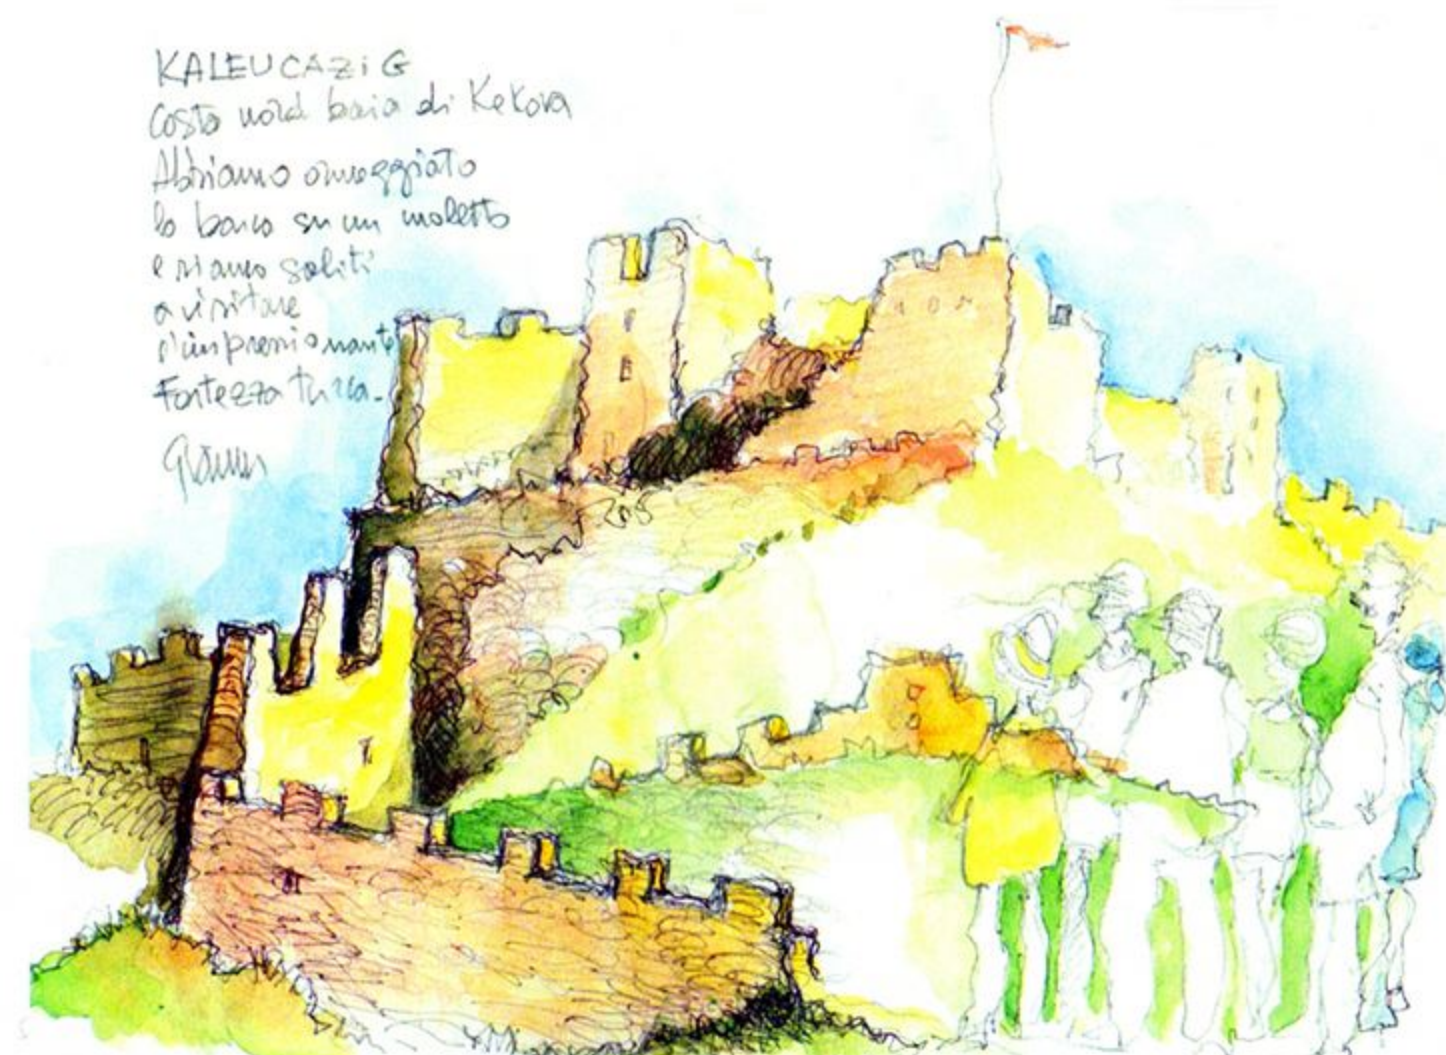 KALEUCAZiG
Costa nord baia di Kekova
Abbiamo ormeggiato
la barca su un moletto
e siamo saliti
a visitare
l'impressionante
Fortezza turca.